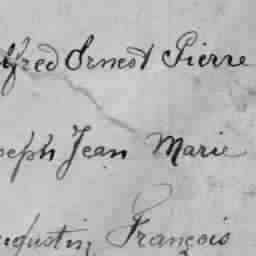 lfred Ernest Pierre
oseph Jean Marie
ugustin François